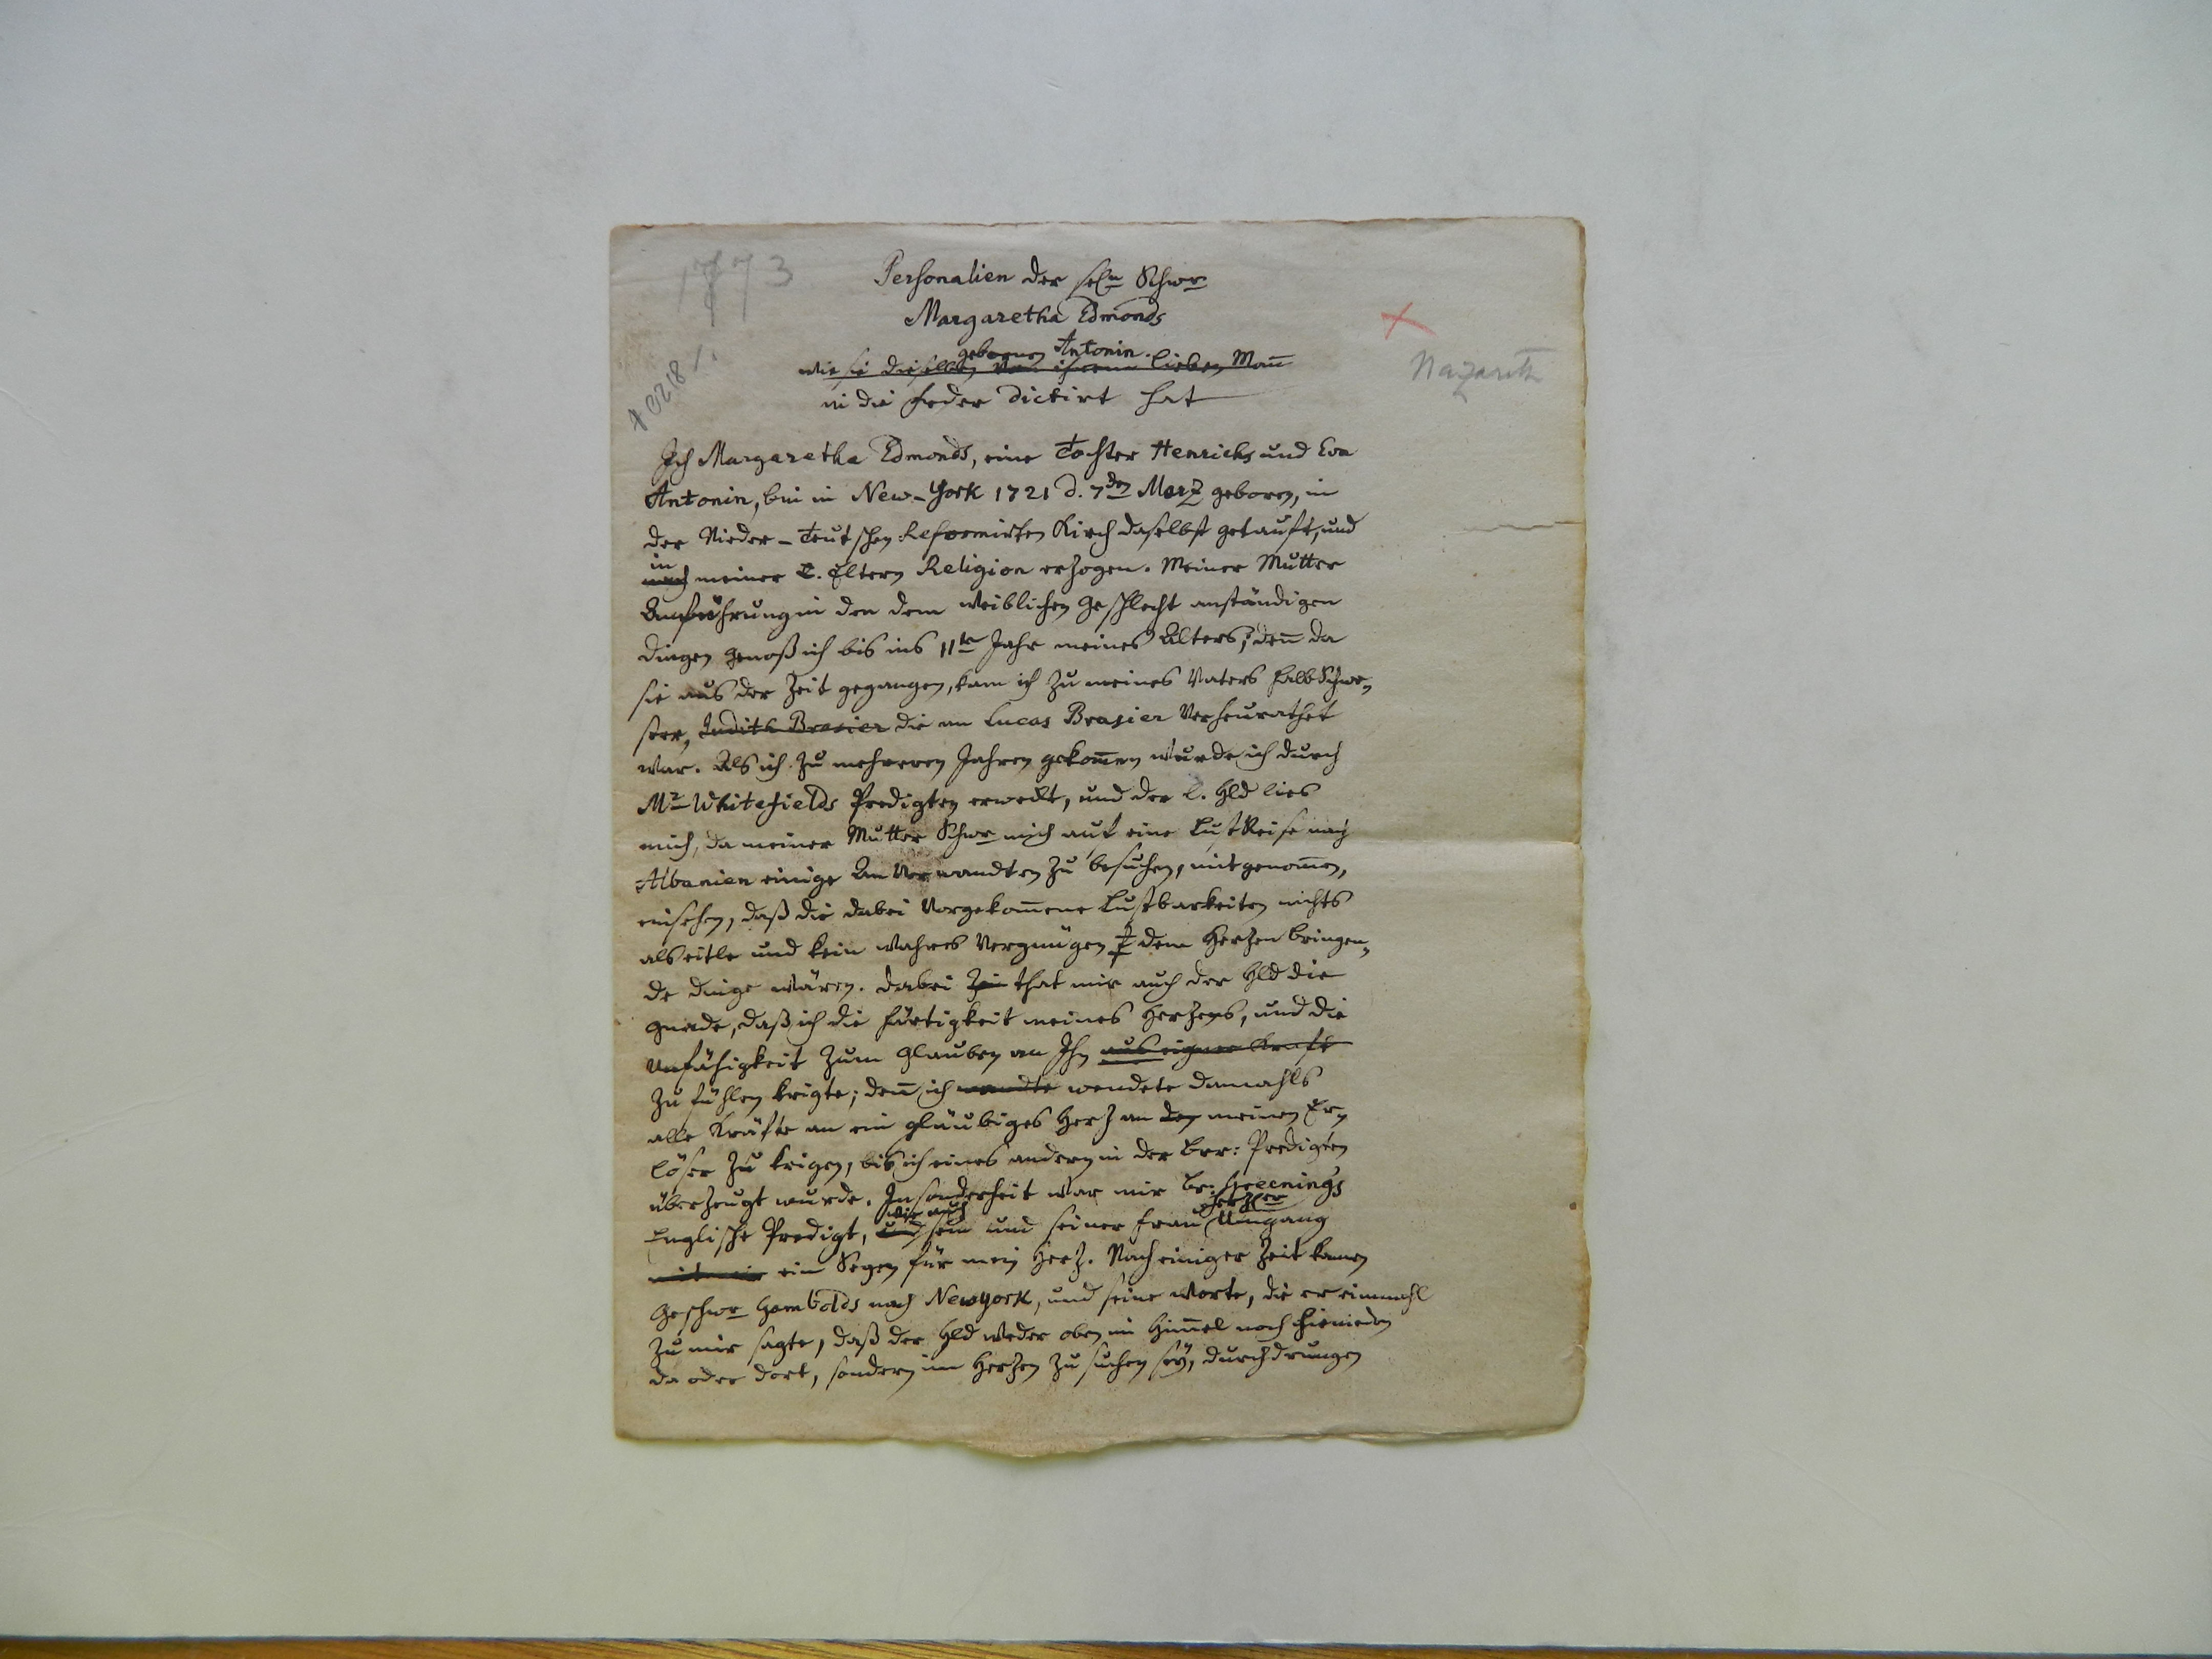 1773
Personalien der seln Schwr
Margaretha Edmonds
gebornen Antonin.
wie sie dieselben von ihrem lieben Mann
in die Feder dictirt hat
Nazareth
Ich Margaretha Edmonds, eine Tochter Henrichs und Eva
Antonin, bin in New-York 1721 d. 7den Merz geboren, in
der Nieder-Teutschen Reformirten Kirch daselbst getauft, und
in
nach meiner l. Eltern Religion erzogen. Meiner Mutter
Anführung in den dem weiblichen Geschlecht anständigen
Dingen genoß ich bis ins 11te Jahr meines Alters; denn da
sie aus der Zeit gegangen, kam ich zu meines Vaters halb Schwe-
ster, Judith Brasier die an Lucas Brasier verheurathet
war. Als ich zu mehreren Jahren gekommen wurde ich durch
Mr Whitefields Predigten erweckt, und der l. Hld lies
mich, da meiner Mutter Schwr mich auf eine Lust Reise nach
Albanien einige Anverwandten zu besuchen, mitgenommen,
einsehen, daß die dabei vorgekommene Lustbarkeiten nichts
als eitle und kein wahres Vergnügen dem Herzen bringen-
de Dinge wären. Dabei that mir auch der Hld die
Gnade, daß ich die Härtigkeit meines Herzens, und die
Unfähigkeit zum Glauben an Ihn aus eigner Kraft
zu fühlen krigte; denn ich wandte wendete damahls
alle Kräfte an ein gläubiges Herz an den meinen Er-
löser zu krigen, bis ich eines andern in der Brr: Predigten
überzeugt wurde. Insonderheit war mir Br: Greenings
wie auch
herzler
Englische Predigt, und sein und seiner Frau Umgang
mit mir ein Segen für mein Herz. Nach einiger Zeit kamen
Geschwr Gambolds nach Newyork, und seine Worte, die er einmahl
zu mir sagte, daß der Hld weder oben im Himmel noch hienieden
da oder dort, sondern im Herzen zu suchen sey, durchdrungen